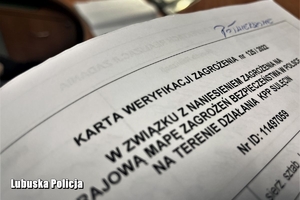 KARTA WERYFIKACJI ZAGROŻENIA nr 120/2022
W ZWIĄZKU Z NANIESIENIEM ZAGROŻENIA NA
KRAJOWĄ MAPĘ ZAGROŻEŃ BEZPIECZEŃSTWA W POLSCE
NA TERENIE DZIAŁANIA KPP SULĘCIN
Nr ID: 11497059
sierż. sztab.
Lubuska Policja